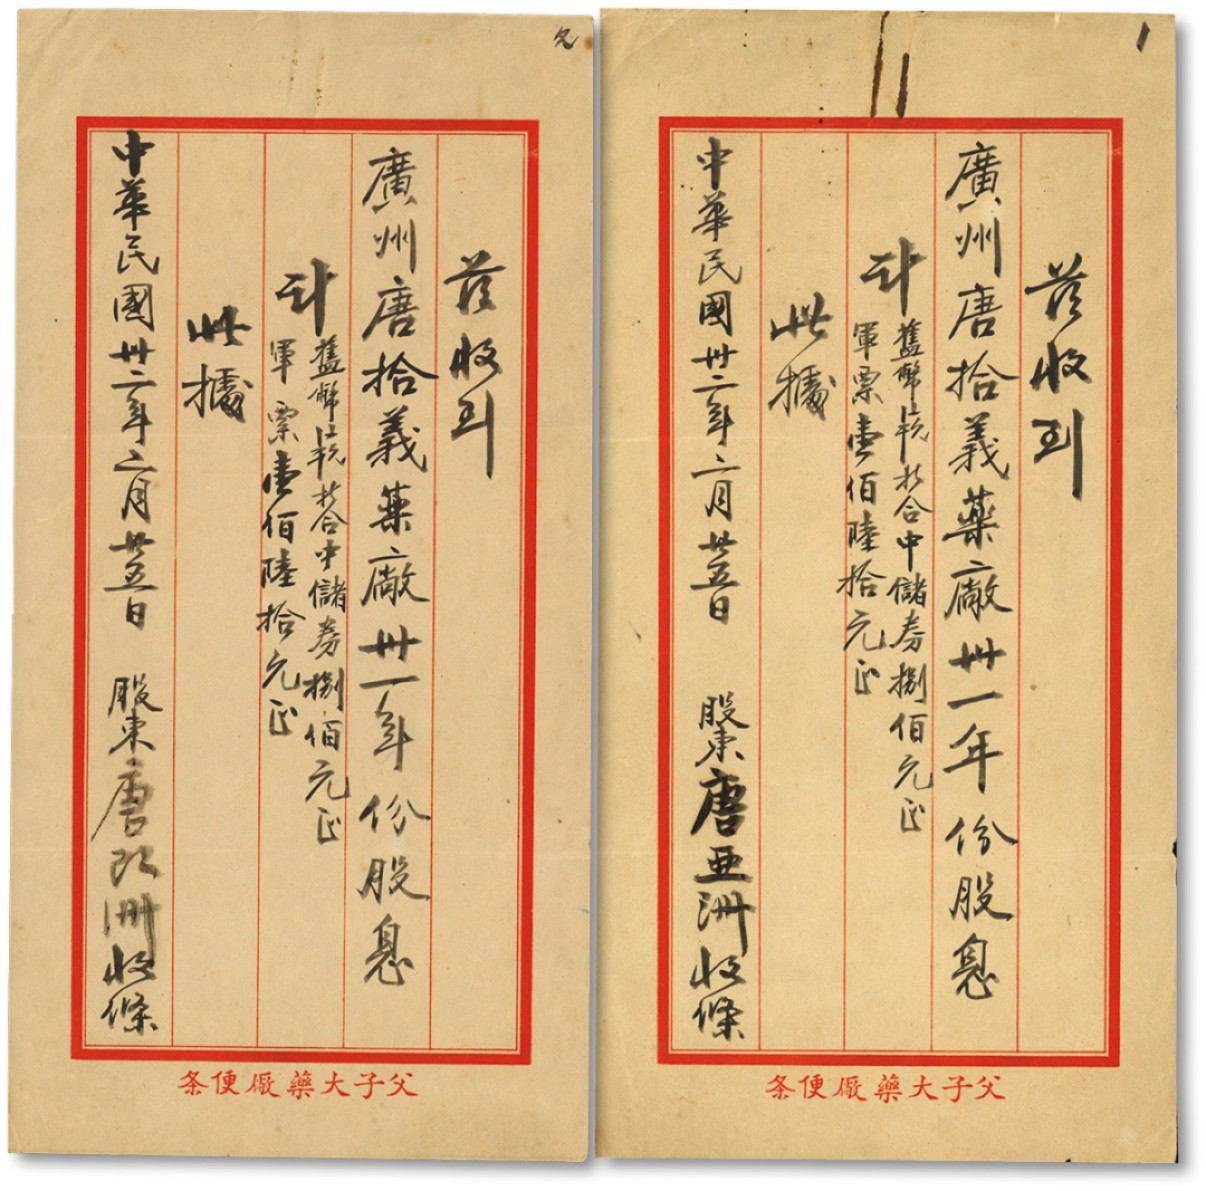 茲收到
廣州唐拾義藥廠卅一年份股息
計
舊幣折合中儲券捌佰元正
軍票壹佰陸拾元正
此據
中華民國卅二年二月廿五日 股東唐亞洲收條
父子大藥厰便条
茲收到
廣州唐拾義藥廠卅一年份股息
計
舊幣折合中儲券捌佰元正
軍票壹佰陸拾元正
此據
中華民國卅二年二月廿五日 股東唐欧洲收條
父子大藥厰便条